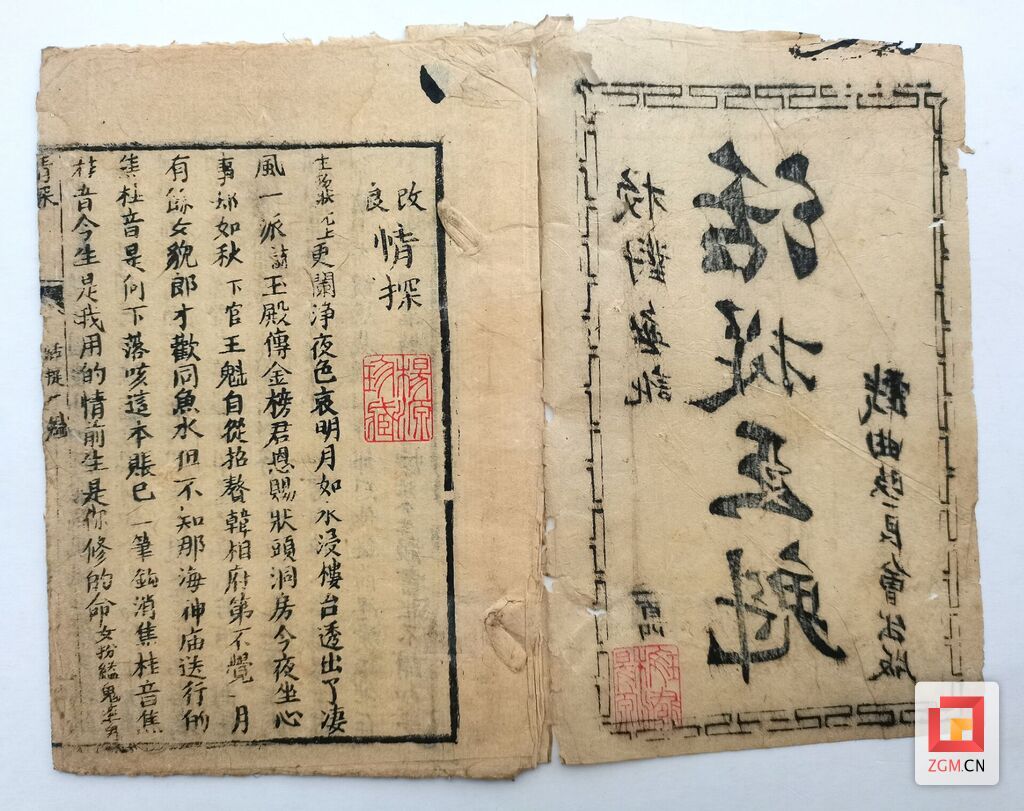 戲曲會出版
活捉王魁
校對無訛
改良
情探
楊源珍藏
上更闌淨夜色哀明月如水浸樓台透出了凄
風一派詩玉殿傳金榜君恩賜狀頭洞房今夜坐心
事却如秋下官王魁自從招贅韓相府第不覺一月
有餘女貌郎才歡同魚水但不知那海神庙送行的
焦桂音是何下落咳這本賬已一筆鈎消焦桂音焦
桂音今生是我用的情前生是你修的命女扮縊鬼
情探
活捉王魁
ZGM.CN